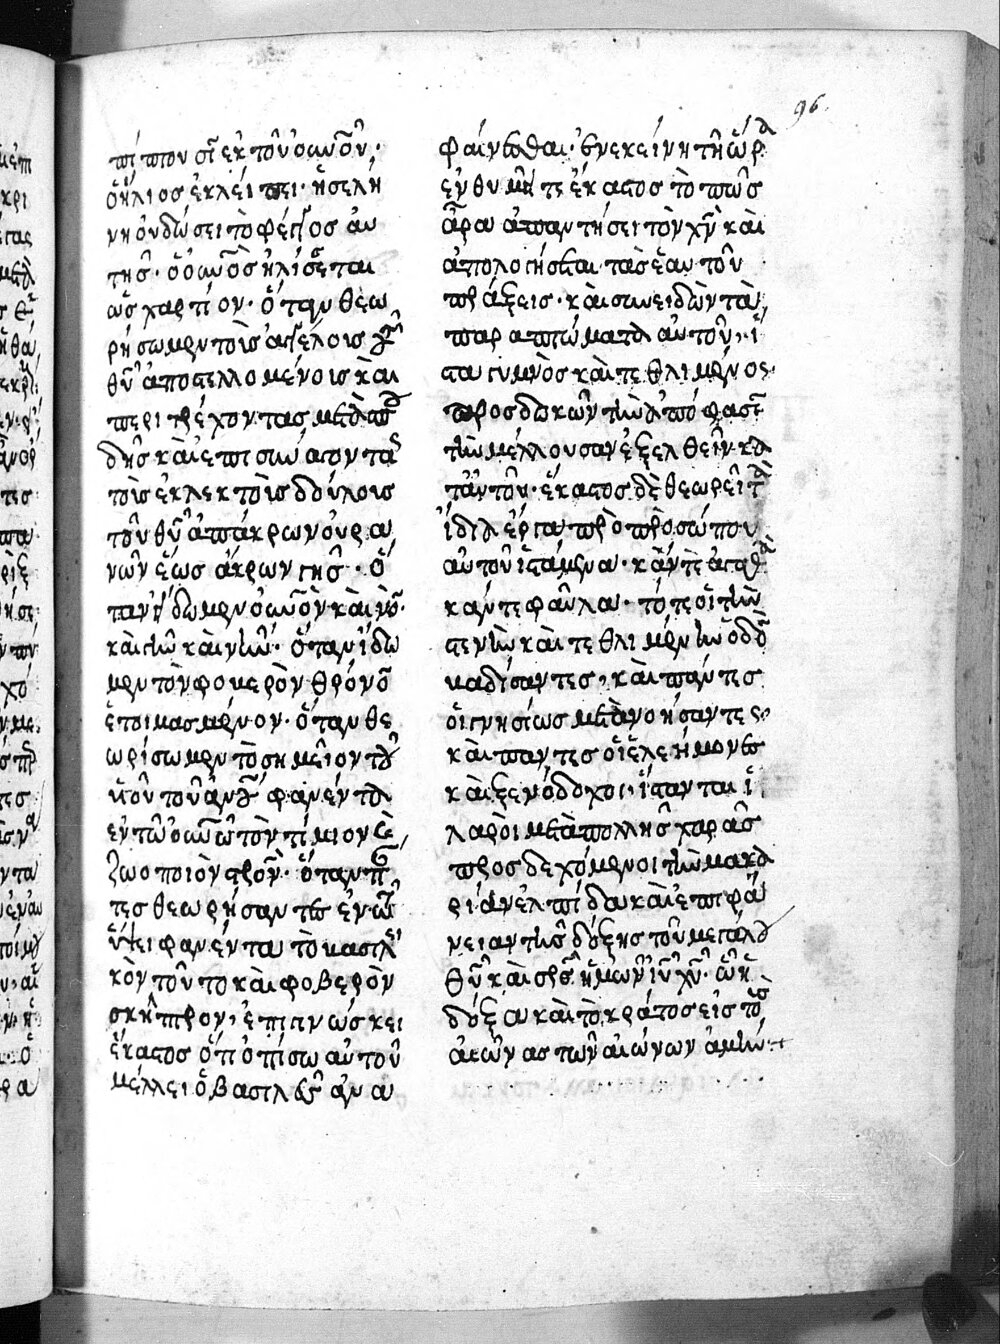 96
πίπτουσι ἐκ τοῦ οὐνοῦ·
ὁ ἥλιος ἐκλείπει· ἡ σελή
νη οὐ δώσει τὸ φέγγος αὐ
τῆς· ὁ οὐνὸς ἑλίσσεται
ὡς χαρτίον· ὅταν θεω
ρήσωμεν τοὺς ἀγγέλους
θῦ ἀποστελλομένοις καὶ
περιτρέχοντας μετὰ σπου
δῆς καὶ ἐπισυνάγοντας
τοὺς ἐκλεκτοὺς δούλους
τοῦ θῦ ἀπ' ἄκρων οὐρα
νῶν ἕως ἄκρων γῆς· ὅ
ταν ἴδωμεν οὐνὸν καινὸ·
καὶ γῆν καινήν· ὅταν ἴδω
μεν τὸν φοβερὸν θρόνον
ἑτοιμασμένον· ὅταν θε
ωρίσωμεν τὸ σημεῖον τοῦ
υἱοῦ τοῦ ἀνου φανέντα
ἐν τῷ οὐνῷ τὸν τίμιον καὶ
ζωοποιὸν στρον· ὅταν πάν
τες θεωρήσαντες ἐν τῷ
ὕψει φανέντα τὸ βασιλει
κὸν τοῦτο καὶ φοβερὸν
σκῆπτρον, ἐπιγνώσκει
ἕκαστος ὅτι ὀπίσω αὐτοῦ
μέλλει ὁ βασιλεὺς ἀνα
φαίνεσθαι· ἐν ἐκείνη τῆ ὥρα
ἐνθυμῆτε ἕκαστος τὸ πῶς
ἄρα ἀπαντήσει τὸν χν καὶ
ἀπολογήσεται τὰς ἑαυτοῦ
πράξεις· καὶ συνειδὼν τὰ
παραπτώματα αὐτοῦ, ἵ
σταται γυμνὸς καὶ τεθλιμένος
προσδοκῶν τὴν ἀπόφασιν
τὴν μέλλουσαν ἐξελθεῖν κα
τ' αὐτοῦ· ἕκαστος δὲ θεωρεῖ τὰ
ἴδια ἔργα πρὸ προσώπου
αὐτοῦ ἱστάμενα· κἄν τε ἀγαθὰ
κἄν τε φαῦλα· τότε οἱ τὴν
στενὴν καὶ τεθλιμένην ὁδὸν
βαδίσαντες, καὶ πάντες
οἱ γνησίως μετανοήσαντες·
καὶ πάντες οἱ ἐλεήμονες
καὶ ξενόδοχοι· ἵστανται ἱ
λαροὶ μετὰ πολλῆς χαρᾶς
προσδεχόμενοι τὴν μακα
ρίαν ἐλπίδα καὶ ἐπιφά
νειαν τῆς δόξης τοῦ μεγάλου
θῦ καὶ σρς ἡμῶν ἰῦ χῦ· ᾧ ἡ
δόξα καὶ τὸ κράτος εἰς τοὺς
αἰῶνας τῶν αἰώνων ἀμήν·+